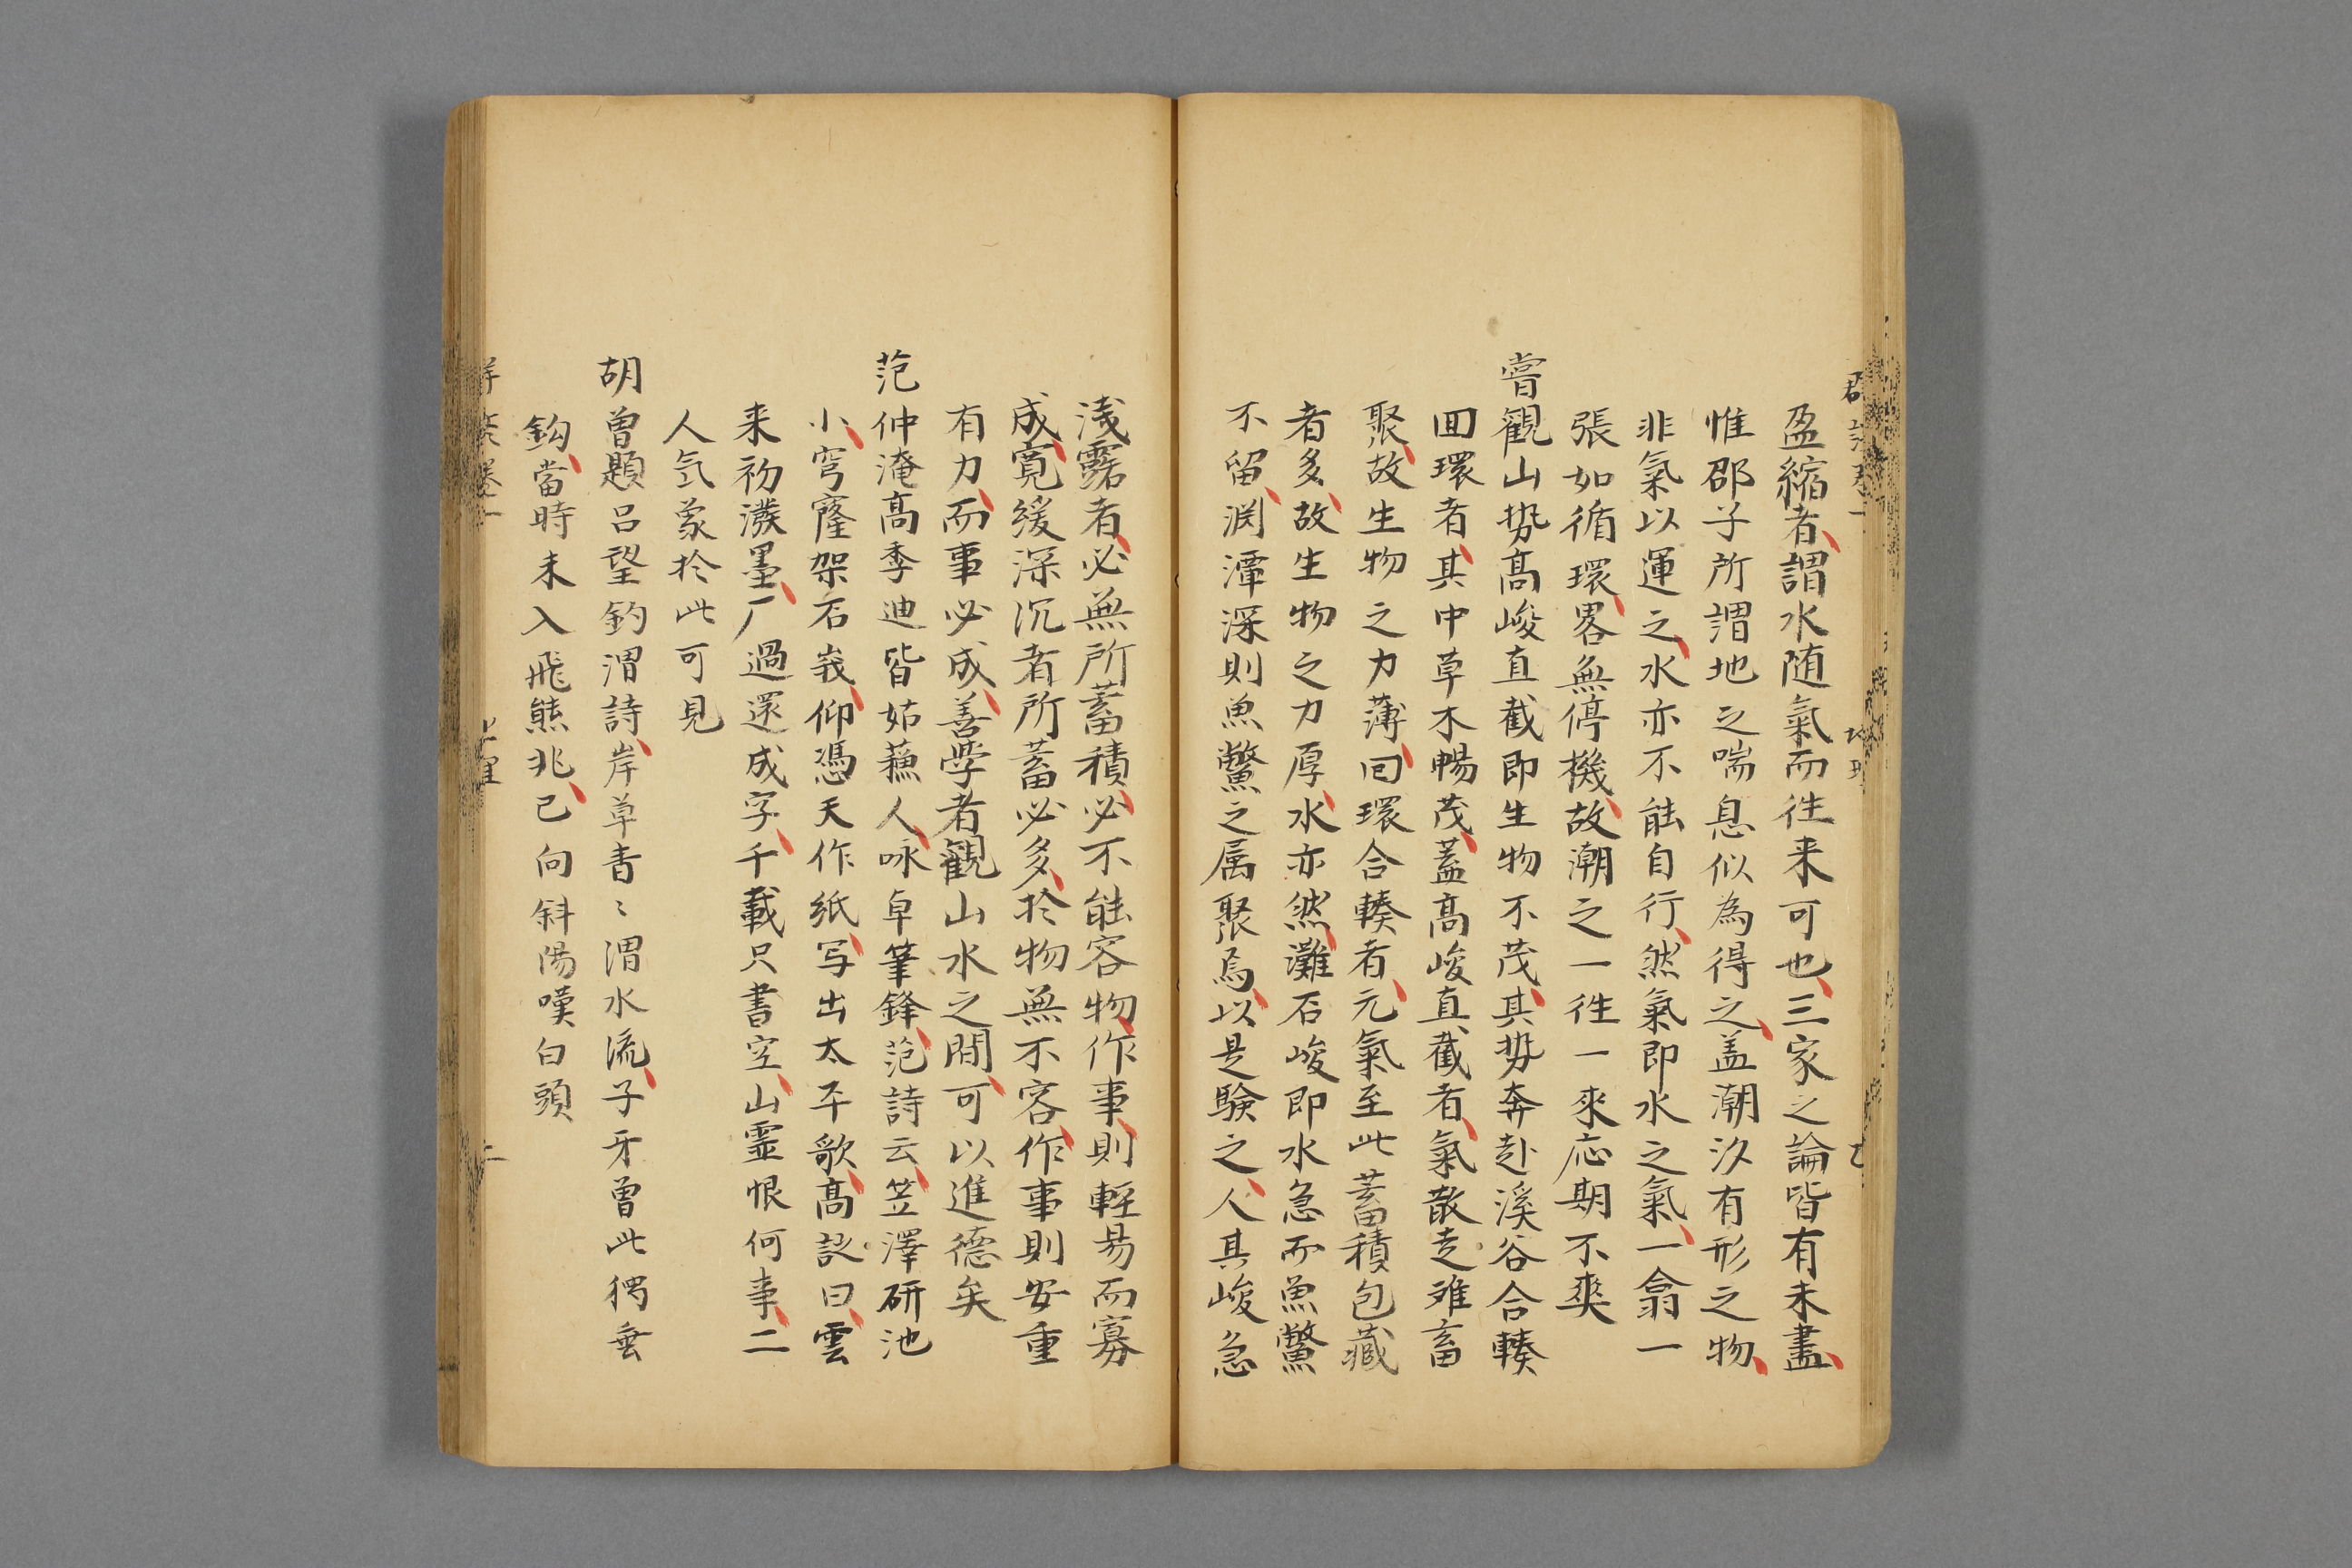 盈縮者謂水随氣而往来可也三家之論皆有未盡
惟邵子所謂地之喘息似為得之盖潮汐有形之物
非氣以運之水亦不能自行然氣即水之氣一翕一
張如循環畧無停機故潮之一往一來応期不爽
嘗觀山势高峻直截即生物不茂其势奔赴溪谷合輳
囬環者其中草木暢茂蓋高峻直截者氣散走难畜
聚故生物之力薄囘環合輳者元氣至此蓄積包藏
者多故生物之力厚水亦然灘石峻即水急而魚鱉
不留渕潭深則魚鱉之属聚焉以是験之人其峻急
浅露者必無所蓄積必不能容物作事則輕易而寡
成寬緩深沉者所蓄必多於物無不容作事則安重
有力而事必成善学者觀山水之間可以進德矣
范仲淹高季迪皆姑蘓人咏卓筆鋒范詩云笠澤研池
小穹窿架石峩仰憑天作紙写出太平歌高詠曰雲
来初潑墨厂過還成字千載只書空山霊恨何事二
人气象於此可見
胡曽題吕望釣渭詩岸草青〻渭水流子牙曽此獨垂
鈎當時未入飛熊兆已向斜陽嘆白頭